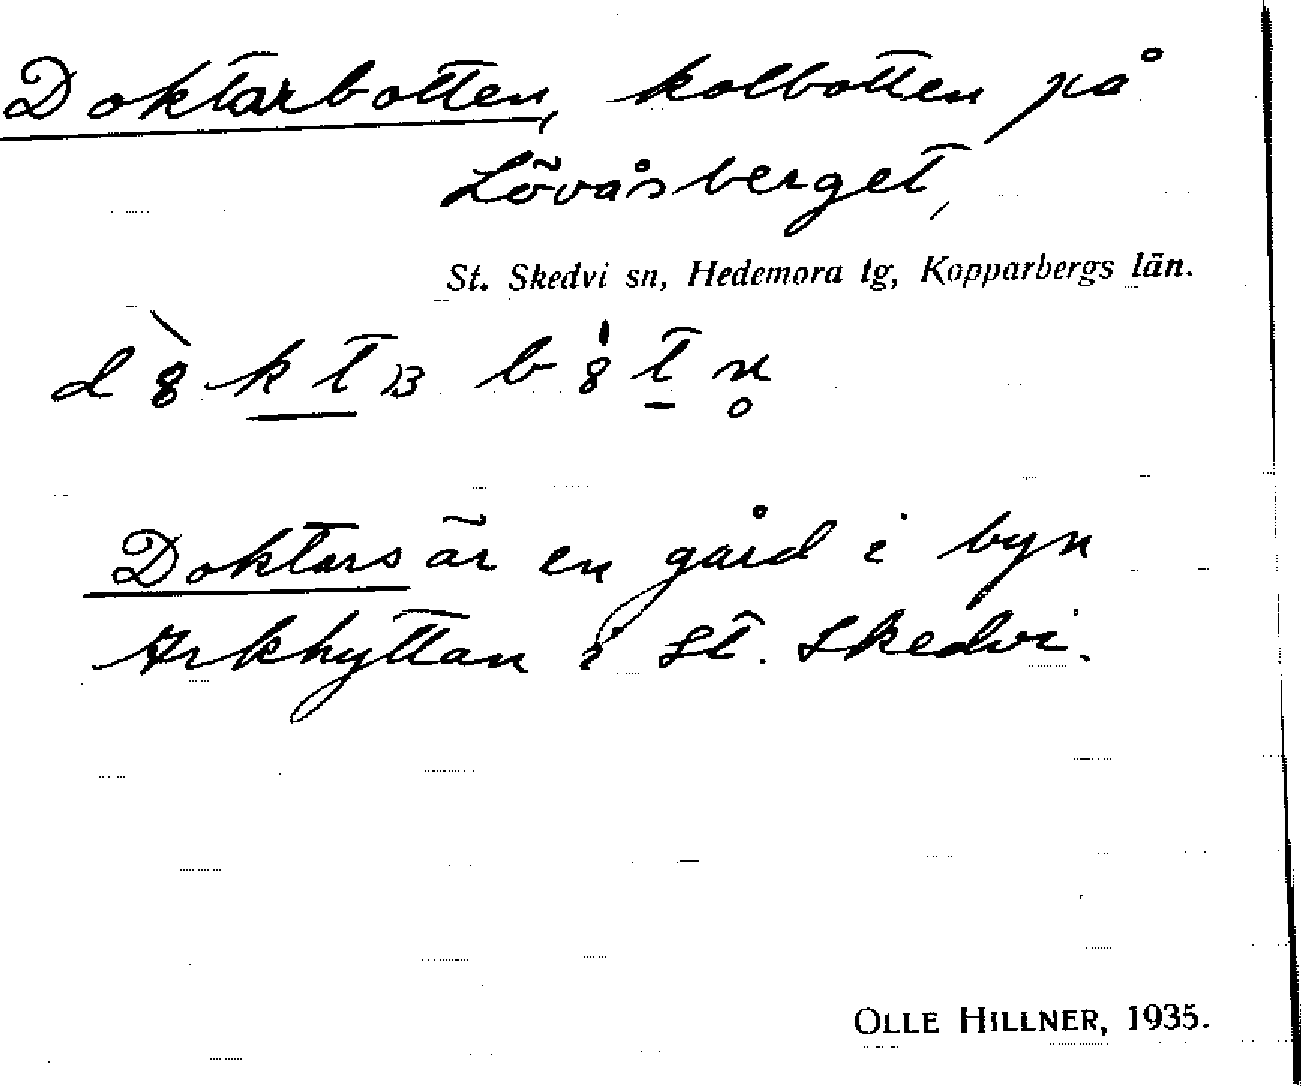 Doktarbotten, kolbotten på
Lövåsberget,
St. Skedvi sn, Hedemora tg, Kopparbergs län.
Doktars är en gård i byn
Arkhyttan i St. Skedvi.
OLLE HILLNER, 1935.